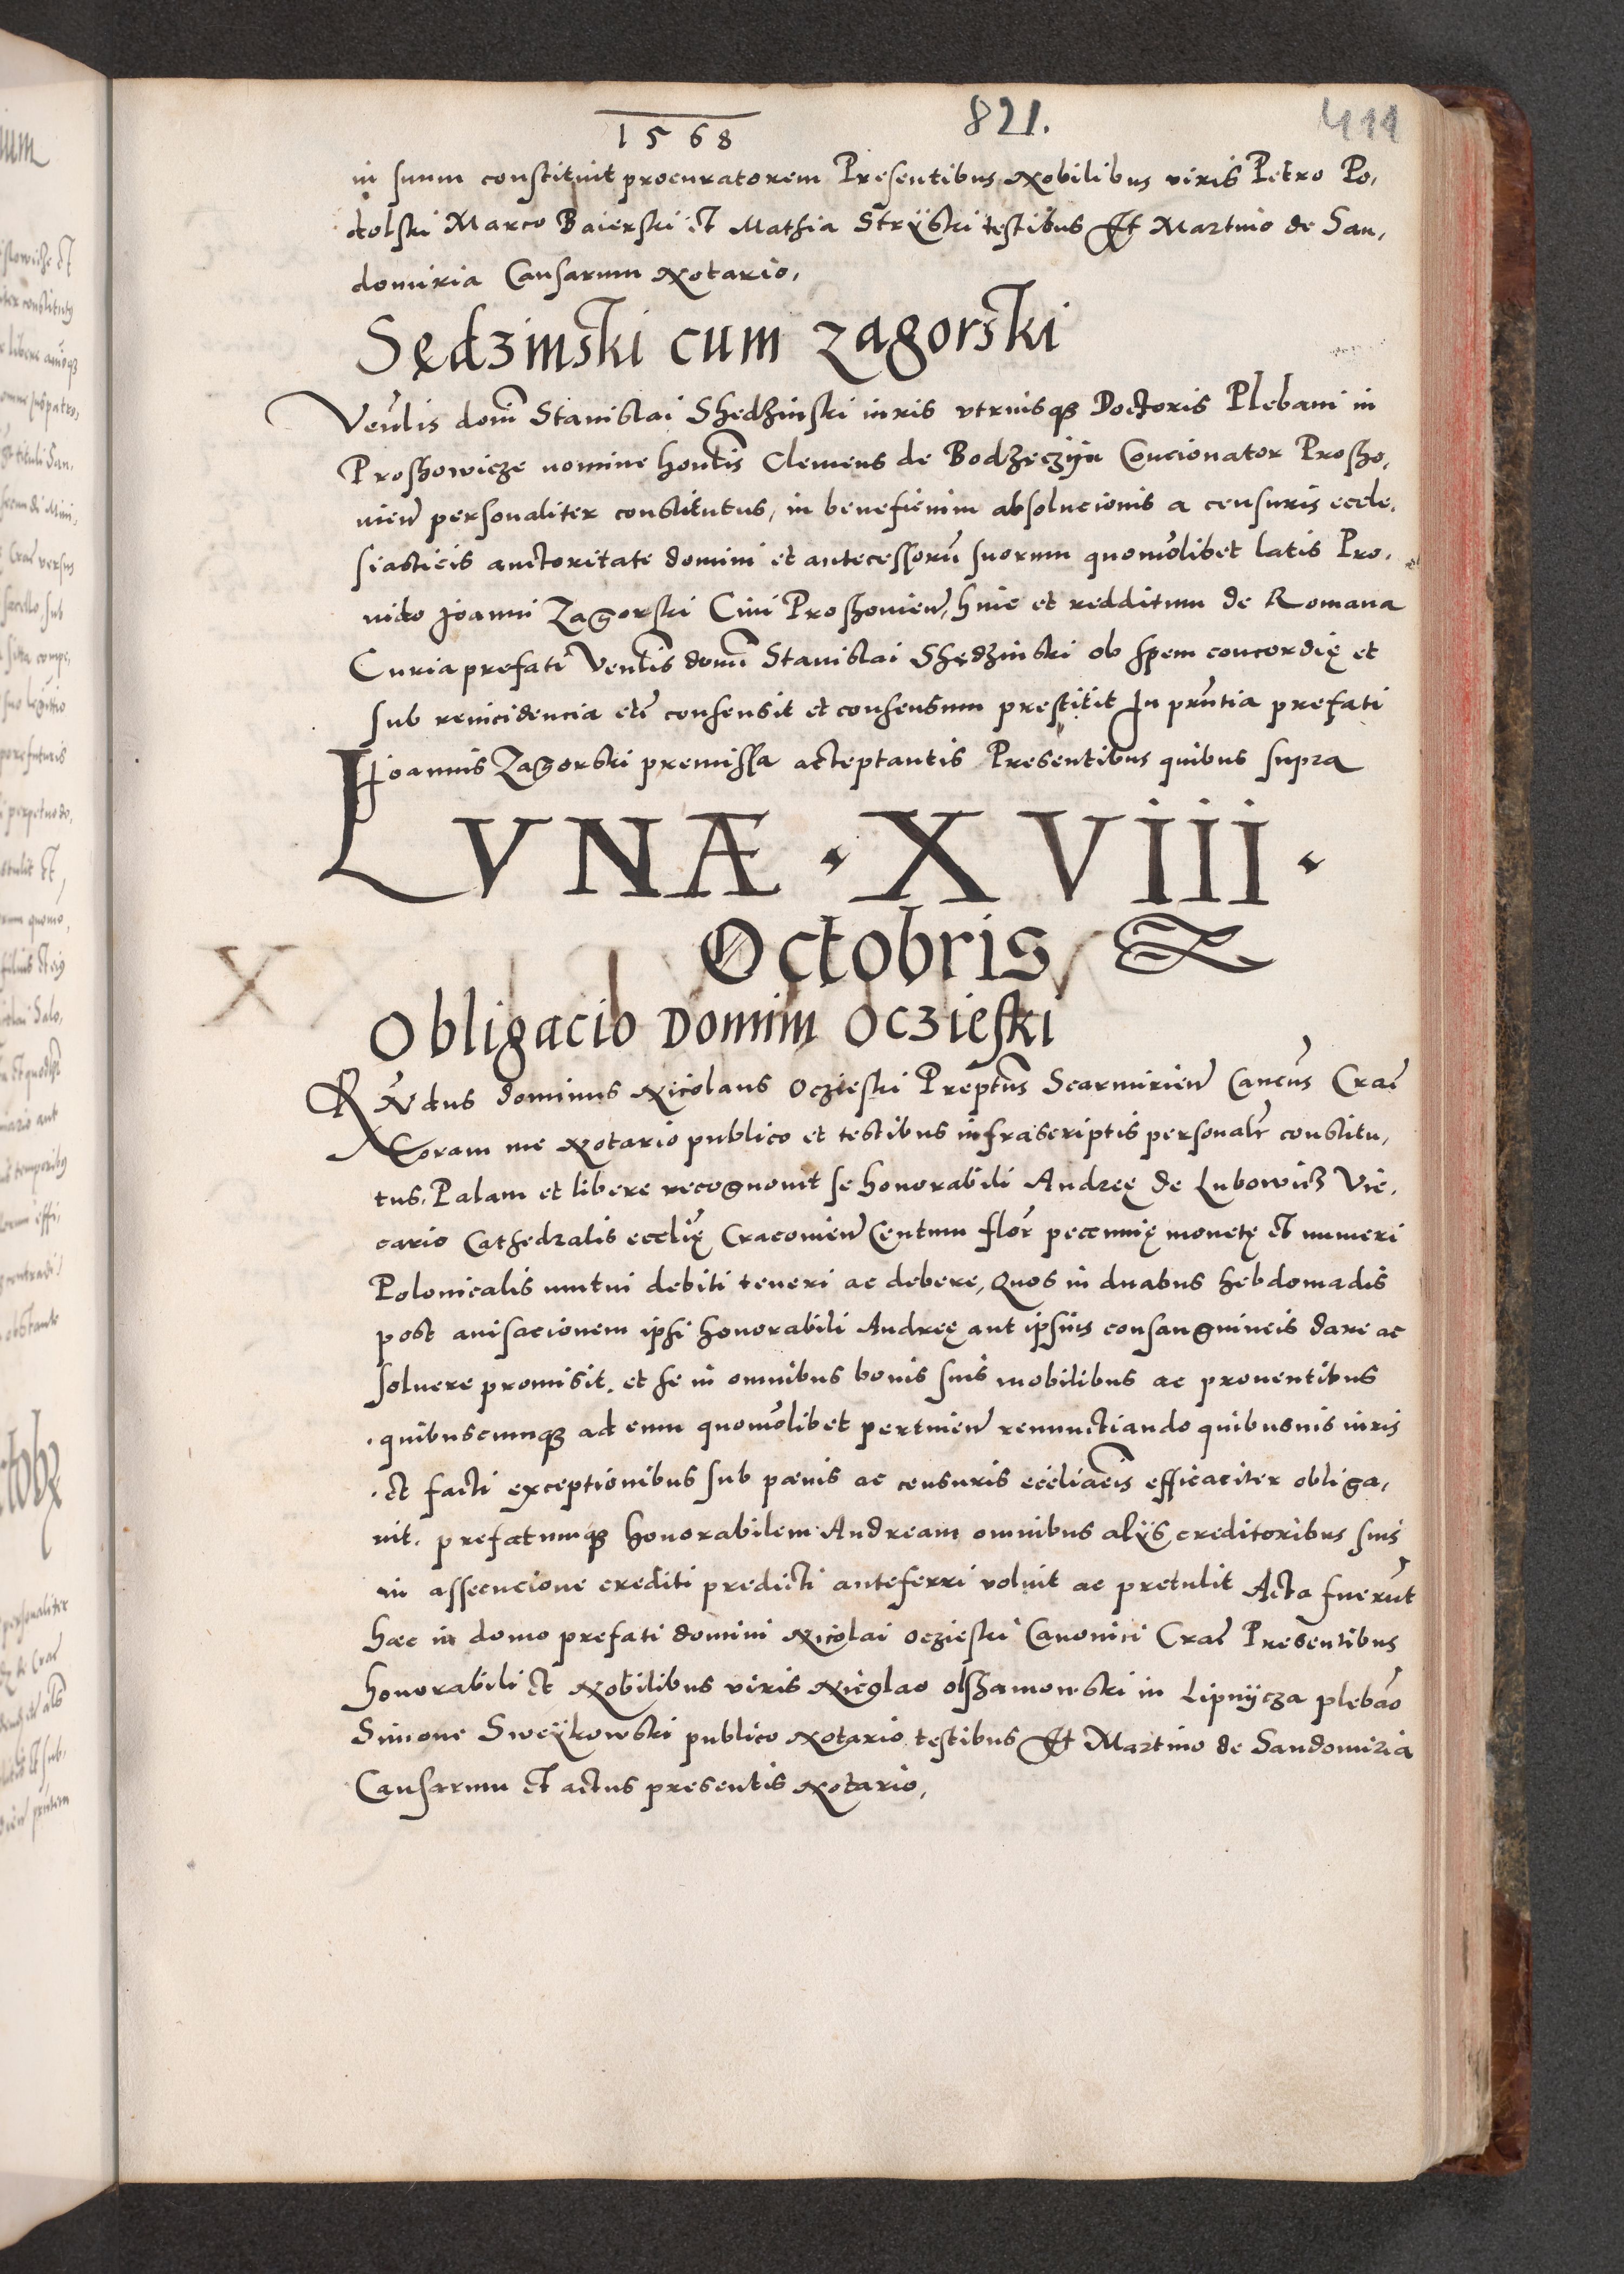 1568 821. 411
in suum constituit procuratorem Presentibus Nobilibus viris Petro Po,
dolski Marco Baierski et Mathia Strÿski testibus Et Martino de San,
domiria Causarum Notario,
Sędzinski cum Zagorski
Venlis domi Stanislai Shedzinski iuris vtriusqȝ Doctoris Plebani in
Proszowicze nomine hontis Clemens de Bodzęczÿn Concionator Proszo,
uien personaliter constitutus, in beneficium absolucionis a censuris eccle,
siasticis auctoritate domini et antecessorū suorum quomolibet latis Pro,
uido Joanni Zagorski Ciui Proszouien, huic et redditum de Romana
Curia prefati Venlis domi Stanislai Shędzinski ob spem concordię et
sub reincidencia etc consensit et consensum prestitit In pruntia prefati
Joannis Zagorski premissa acceptantis Presentibus quibus supra
LVNÆ · XVIII ·
Octobris
Obligacio Domini Oczieski
Rndus dominus Nicolaus Oczieski Preptus Scarmirien Cancus Crac
Coram me Notario publico et testibus infrascriptis personalr constitu,
tus, Palam et libere recognouit se honorabili Andreę de Lubowicz Vic,
cario Cathedralis ecclię Cracouien Centum flor pecunię monetę et numeri
Polonicalis mutui debiti teneri ac debere, Quos in duabus hebdomadis
post auisacionem ipsi honorabili Andreę aut ipsius consanguineis dare ac
soluere promisit, et se in omnibus bonis suis mobilibus ac prouentibus
quibuscumqȝ ad eum quomolibet pertinen renunctiando quibusuis iuris
et facti exceptionibus sub pœnis ac censuris eccliacis efficaciter obliga,
uit, prefatumqȝ honorabilem Andream omnibus alÿs creditoribus suis
in assecucione crediti predicti anteferri voluit ac pretulit Acta fuerūt
hæc in domo prefati domini Nicolai Oczieski Canonici Crac Presentibus
honorabili et Nobilibus viris Nicolao Olszamowski in Lipnÿcza plebāo
Simone Sweÿkowski publico Notario testibus Et Martino de Sandomiria
Causarum et actus presentis Notario,